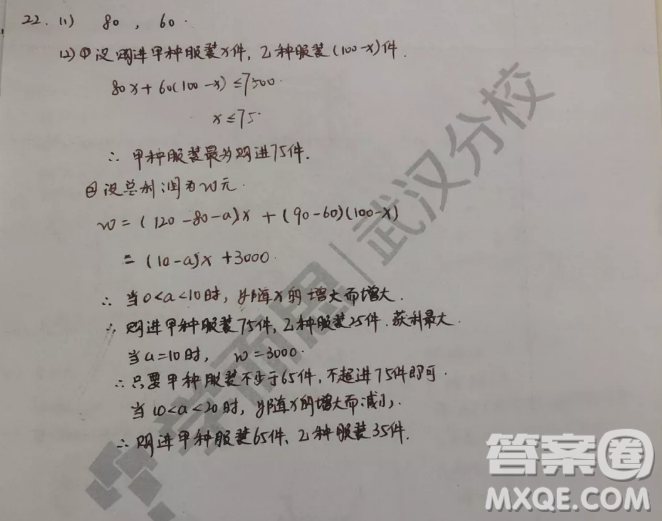 22. (1) 80 , 60.
(2) ① 设购进甲种服装x件, 乙种服装(100-x)件.
80x+60(100-x)≤7500.
x≤75.
∴ 甲种服装最多购进75件.
② 设总利润为w元.
w=(120-80-a)x+(90-60)(100-x)
=(10-a)x+3000.
∴ 当0<a<10时, y随x的增大而增大.
∴ 购进甲种服装75件, 乙种服装25件, 获利最大.
当a=10时, w=3000.
∴ 只要甲种服装不少于65件, 不超过75件即可.
当10<a<20时, y随x的增大而减小,
∴ 购进甲种服装65件, 乙种服装35件.
学而思|武汉分校
答案圈
MXQE.COM